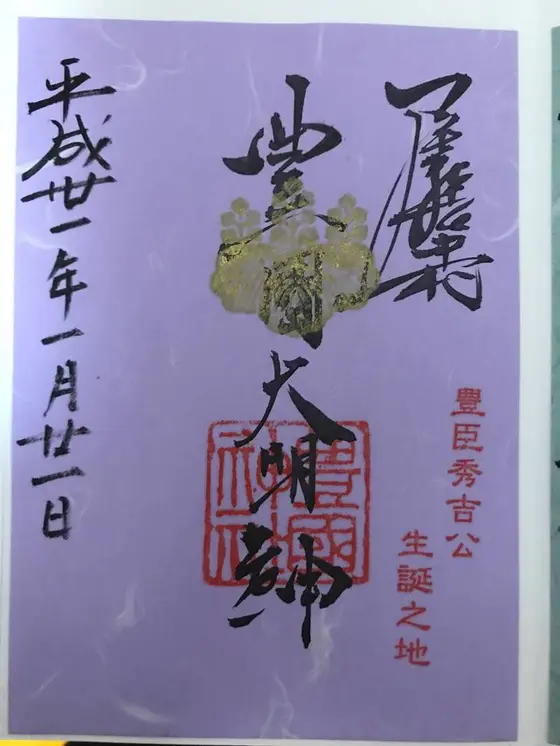 豊國大明神
豊國神社
豊臣秀吉公
生誕之地
平成丗一年一月廿一日